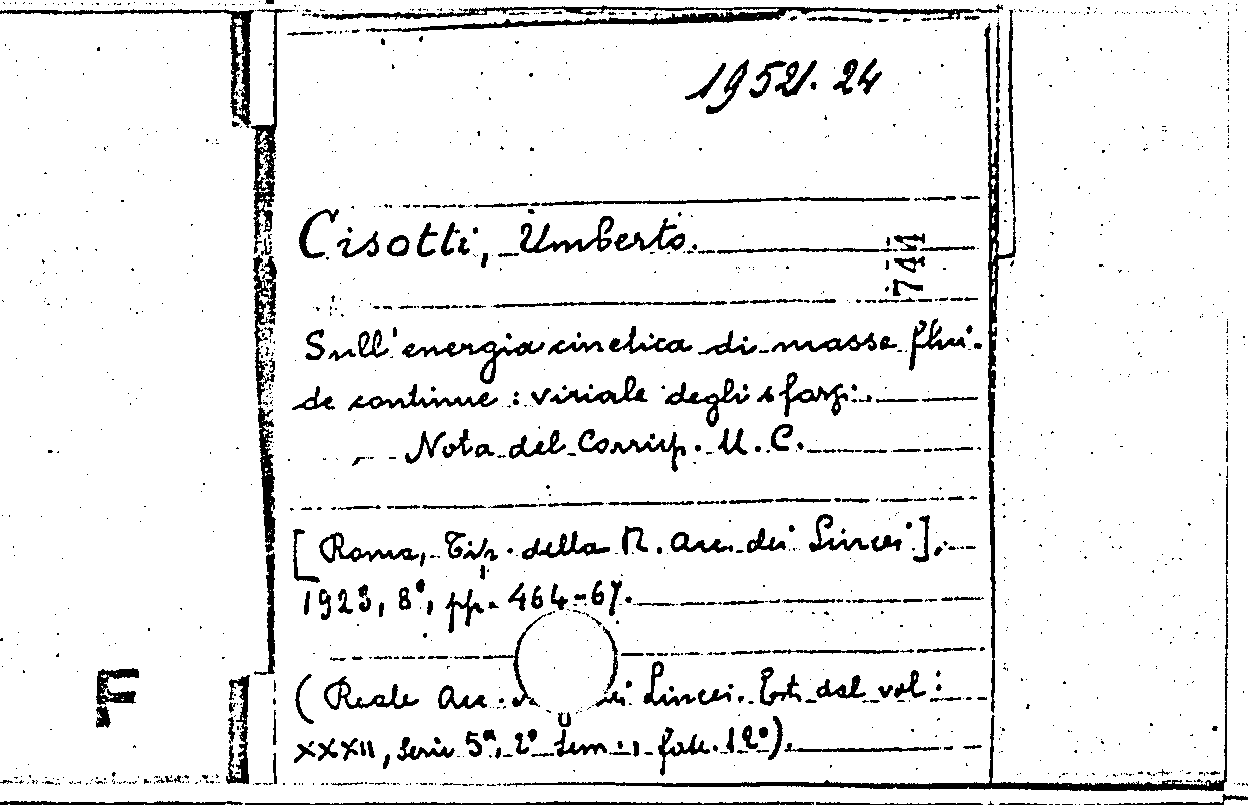 19521. 24
Cisotti, Umberto.
744
Sull'energia cinetica di masse flui-
de continue: viriale degli sforzi.
Nota del Corrisp. U. C.
[Roma, Tip. della R. Acc. dei Lincei],
1923, 8°, pp. 464-67.
(Reale Acc. Lincei. Estr. dal vol.
XXXII, serie 5ª, 2° sem., fasc. 12°).
F